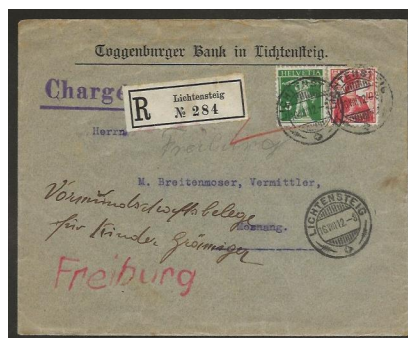 Toggenburger Bank in Lichtensteig.
Charge
R
Lichtensteig
№ 284
HELVETIA
Herrn
Freiburg
M. Breitenmoser, Vermittler,
Vormundschaftsbelege
für Kinder
LICHTENSTEIG
Mosnang.
Freiburg